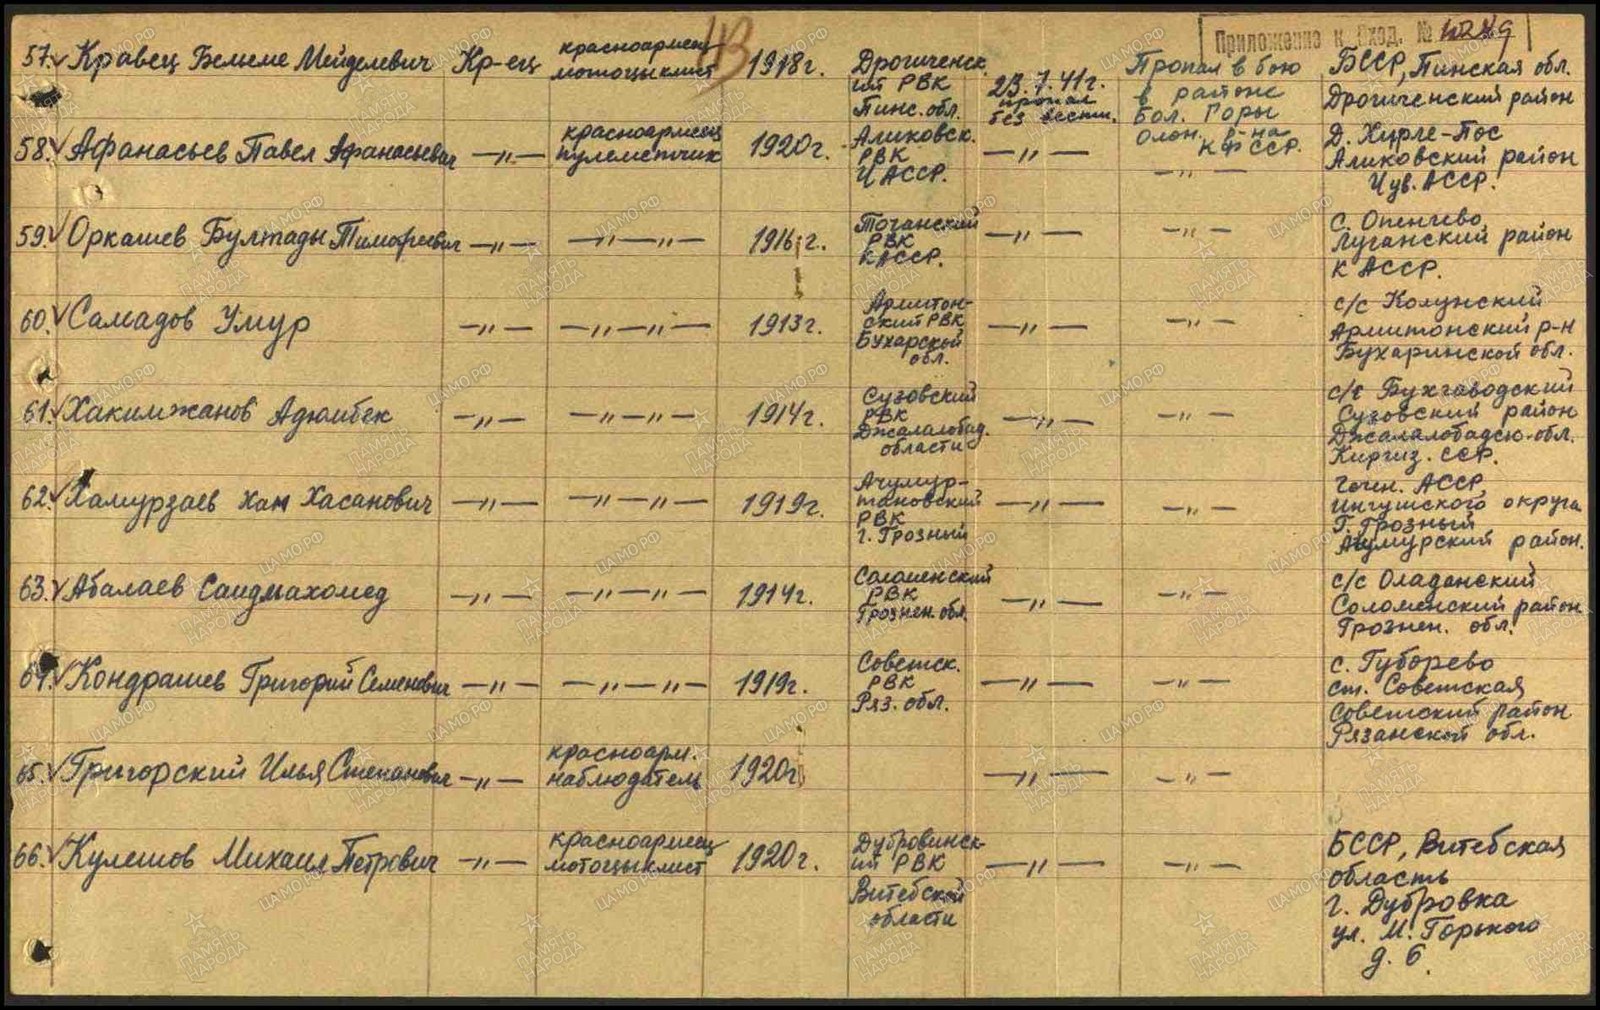 Приложение к Вход. №
43
57. Кравец Бельме Мейделевич Кр-ец красноармеец мотоциклист 1918г. Дрогиченск. ий РВК Пинс. обл. 23.7.41г. пропал без вести. Пропал в бою в районе Бол. Горы Олон. р-на КФССР. БССР, Пинская обл. Дрогиченский район
58. Афанасьев Павел Афанасьевич —„— красноармеец пулеметчик 1920г. Аликовск. РВК ЧАССР. —„— —„— д. Хирле-Пос Аликовский район Чув. АССР.
59. Оркашев Бултады Тимофеевич —„— —„—„— 1916г. Тоганский РВК КАССР. —„— —„— с. Опенгево Луганский район КАССР.
60. Самадов Умур —„— —„—„— 1913г. Армитон- ский РВК Бухарской обл. —„— —„— с/с Колунский Армитонский р-н Бухаринской обл.
61. Хакимжанов Адюибек —„— —„—„— 1914г. Сузовский РВК Джалалобад. области —„— —„— с/с Бухгаводский Сузовский район Джалалобадско-обл. Киргиз. ССР.
62. Хамурзаев Хан Хасанович —„— —„—„— 1919г. Ачумур- тановский РВК г. Грозный —„— —„— Чечен. АССР Ингушского округа Г. Грозный Ачумурский район.
63. Абалаев Саидмахомед —„— —„—„— 1914г. Саломенский РВК Грознен. обл. —„— —„— с/с Оладанский Соломенский район Грознен. обл.
64. Кондрашев Григорий Семенович —„— —„—„— 1919г. Советск. РВК Ряз. обл. —„— —„— с. Губорево ст. Советская Советский район Рязанской обл.
65. Григорский Илья Степанович —„— красноарм. наблюдатель 1920г. —„— —„—
66. Кулешов Михаил Петрович —„— красноармеец мотоциклист 1920г. Дубровинск- ий РВК Витебской области —„— —„— БССР, Витебская область г. Дубровка ул. М. Горького д. 6.
ПАМЯТЬ НАРОДА
ЦАМО.РФ